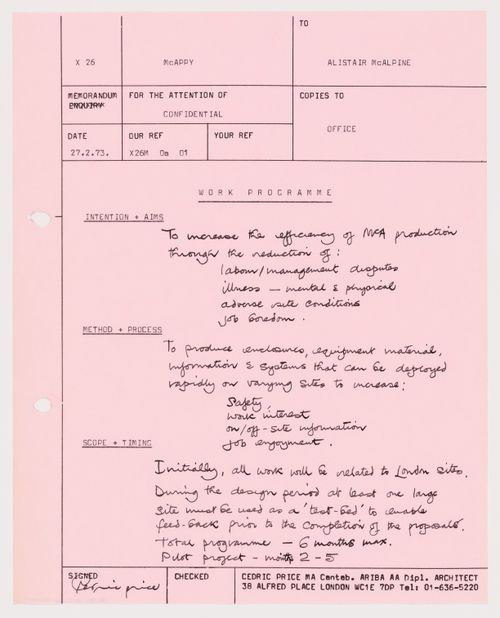 TO
X 26 McAPPY ALISTAIR McALPINE
MEMORANDUM FOR THE ATTENTION OF COPIES TO
ENQUIRY
CONFIDENTIAL
OFFICE
DATE OUR REF YOUR REF
27.2.73. X26M Da 01
WORK PROGRAMME
INTENTION + AIMS
To increase the efficiency of McA production
through the reduction of :
labour/management disputes
illness — mental & physical
adverse site conditions
job boredom .
METHOD + PROCESS
To produce enclosures, equipment material,
information & systems that can be deployed
rapidly on varying sites to increase :
Safety
work interest
on/off-site information
job enjoyment .
SCOPE + TIMING
Initially, all work will be related to London sites.
During the design period at least one large
site must be used as a 'test-bed' to enable
feed-back prior to the completion of the proposals.
Total programme — 6 months max.
Pilot project - months 2 - 5
SIGNED CHECKED CEDRIC PRICE MA Cantab. ARIBA AA Dipl. ARCHITECT
Cedric Price 38 ALFRED PLACE LONDON WC1E 7DP Tel: 01-636-5220